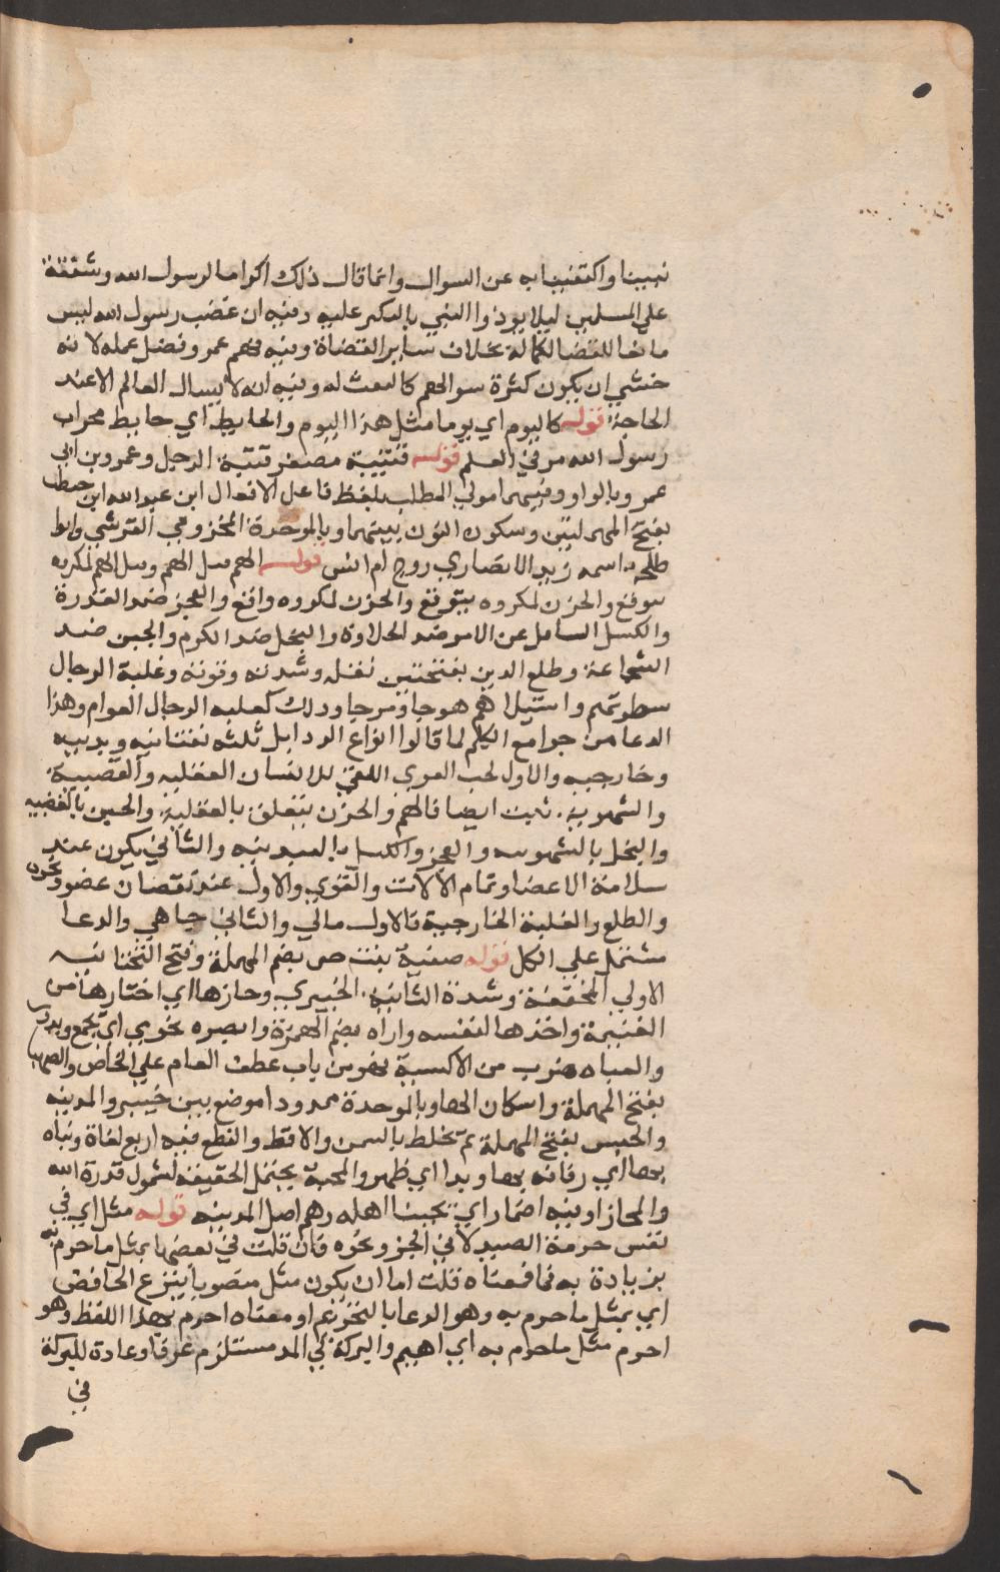 نبينا واكتفينا به عن السوال وانما قال ذلك اكراما لرسول الله وشفقة
علي المسلمين ليلا يوذوا النبي بالتكثر عليه وفيه ان غضب رسول الله ليس
مانعا للقضا لكماله بخلاف ساير القضاة وفيه فهم عمر وفضل عمله لانه
خشي ان يكون كثرة سوالهم كالعنت له وفيه انه لا يسال العالم الا عند
الحاجة قوله كاليوم اي يوما مثل هذا اليوم والحايط اي حايط محراب
رسول الله مر في العلم قوله قتيبة مصغر قتبة الرحل وعمرو بن ابي
عمرو بالواو وفيهما مولي المطلب بلفظ فاعل الافتعال ابن عبد الله ابن حنطب
بفتح المهملتين وسكون النون بينهما وبالموحدة المخزومي القرشي وابو
طلحة اسمه زيد الانصاري زوج ام انس قوله الهم لمكروه
يتوقع والحزن لمكروه واقع والعجز ضد القدرة
والكسل التثاقل عن الامر ضد الجلادة والبخل ضد الكرم والجبن ضد
الشجاعة وضلع الدين بفتحتين ثقله وشدته وقوته وغلبة الرجال
سطوتهم واستيلاهم هرجا ومرجا وذلك كغلبة الرجال العوام وهذا
الدعا من جوامع الكلم لما قالوا انواع الرذايل ثلثه نفسانيه وبدنيه
وخارجيه والاول بحسب القوي التي للانسان العقلية والغضبية
والشهوية ثلث ايضا فالهم والحزن يتعلق بالعقلية والجبن بالغضبيه
والبخل بالشهويه والعجز والكسل بالبدنيه والثاني يكون عند
سلامة الاعضا وتمام الالات والقوي والاول عند نقصان عضو ونحوه
والضلع والغلبة الخارجية فالاول مالي والثاني جاهي والدعا
مشتمل علي الكل قوله صفية بنت حي بضم المهملة وفتح التحتانيه
الاولي المخففة وشدة الثانية الخيبري وحازها اي اختارها من
الغنيمة واخذها لنفسه واراه بضم الهمزة وابصره يحوي اي يجمع ويدور
والعباه ضرب من الاكسية فهو من باب عطف العام علي الخاص والصهبا
بفتح المهملة واسكان الها وبالموحدة ممدودا موضع بين خيبر والمدينه
والحيس بفتح المهملة تمر يخلط بالسمن والاقط والنطع فيه اربع لغات وبناه
بها اي زفافه بها وبدا اي ظهر والمحبة يحتمل الحقيقة لشمول قدرة الله
والمجاز او فيه اضمار اي يحبنا اهله وهم اهل المدينه قوله مثل اي في
نفس حرمة الصيد لا في الجزا ونحوه فان قلت في بعضها بمثل ما حرم به
بزيادة به فما معناه قلت اما ان يكون مثل منصوبا بنزع الخافض
اي بمثل ما حرم به وهو الدعا بالتحريم او معناه احرم بهذا اللفظ وهو
احرم مثل ما حرم به ابراهيم والبركة في المد مستلزم عرفا وعادة للبركة
في